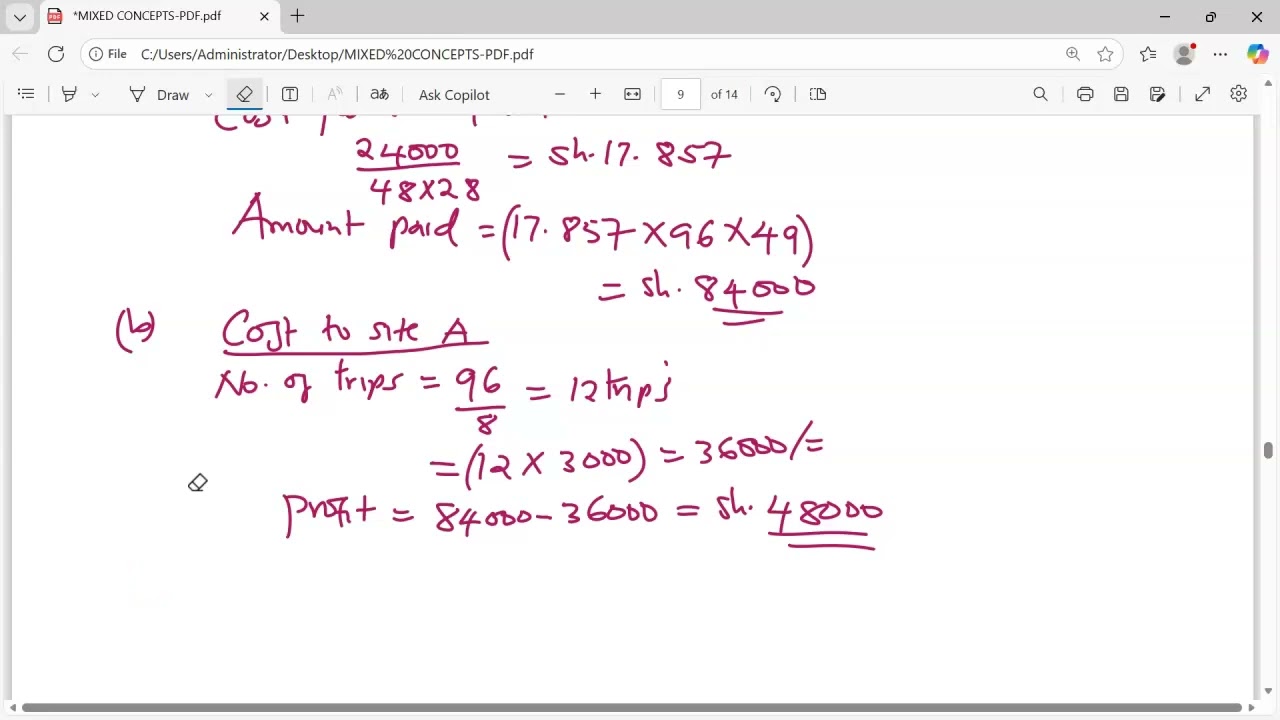 *MIXED CONCEPTS-PDF.pdf
File C:/Users/Administrator/Desktop/MIXED%20CONCEPTS-PDF.pdf
Draw aあ Ask Copilot 9 of 14
24000 = sh.17.857
48×28
Amount paid = (17.857×96×49)
= sh. 84000
(b) Cost to site A
No. of trips = 96 = 12 trips
8
= (12 × 3000) = 36000/=
Profit = 84000-36000 = sh. 48000